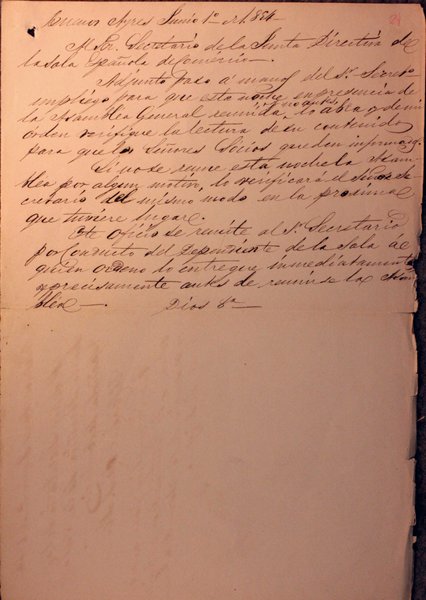 Buenos Ayres Junio 1º de 1854
21
Al Sr. Secretario de la Junta Directiva de
la Sala Española de Comercio.
Adjunto paso á manos del Sr. Secreto
un pliego para que esta noche en presencia de
la Asamblea General reunida, y no antes, lo abra y de mi
orden verifique la lectura de su contenido
para que los Señores Socios queden informados
Si no se reune esta noche la Asam-
blea por algun motivo, lo verificará el Señor Se
cretario del mismo modo en la proxima
que tuviere lugar.
Este oficio se remite al Sr. Secretario
por conducto del Dependiente de la Sala a
quien ordeno lo entregue inmediatamente
y precisamente antes de reunirse la Asam-
blea Dios &ª